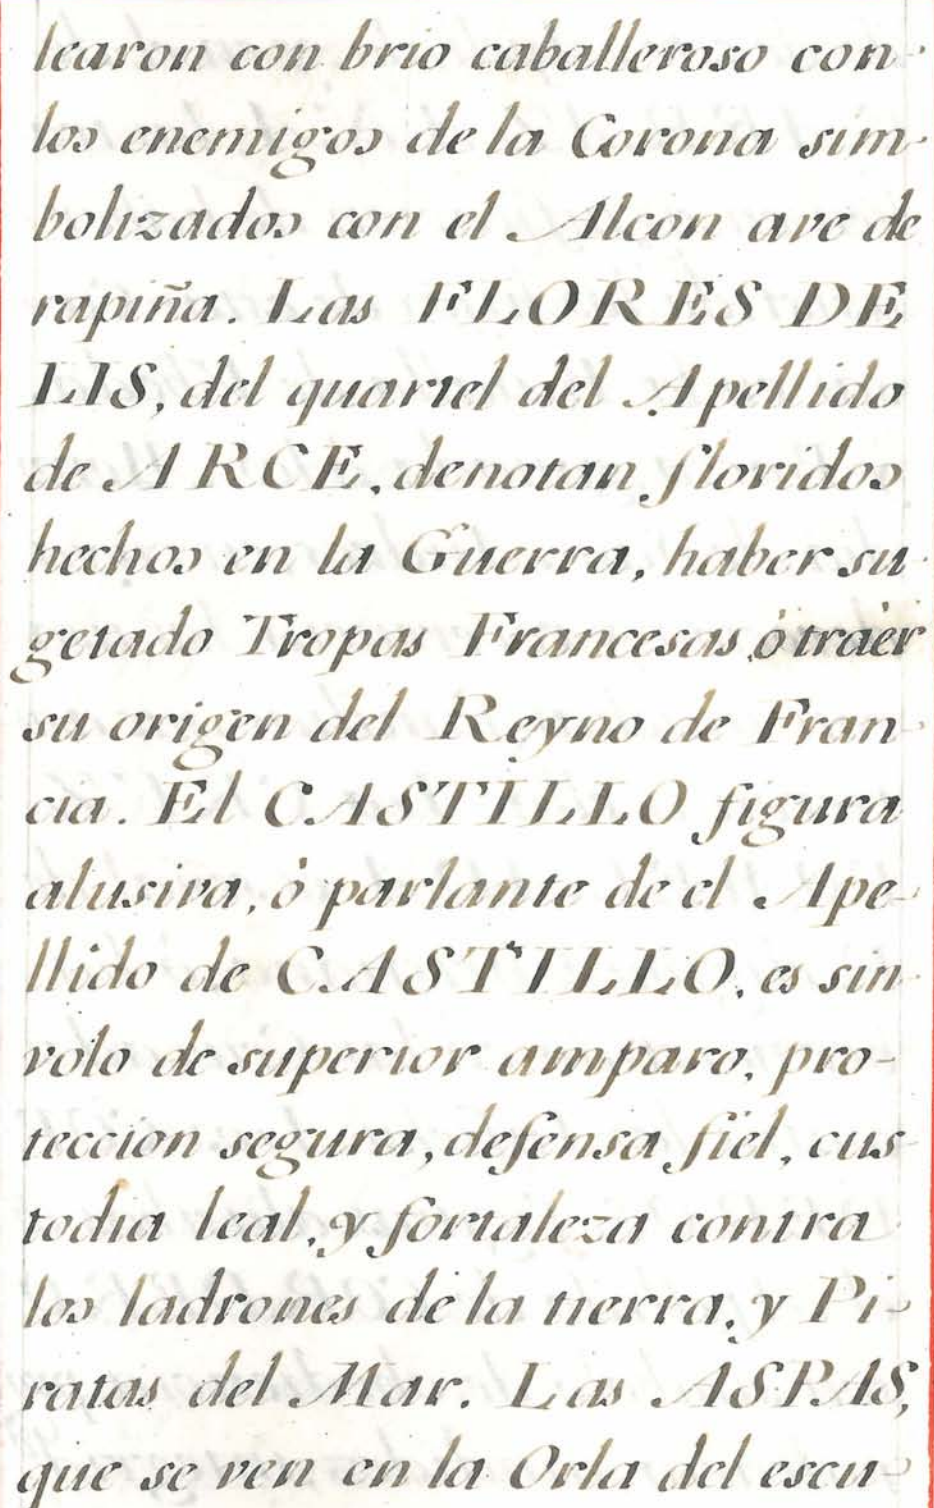 learon con brio caballeroso con
los enemigos de la Corona sim-
bolizados con el Alcon ave de
rapiña. Las FLORES DE
LIS, del quartel del Apellido
de ARCE, denotan floridos
hechos en la Guerra, haber su-
getado Tropas Francesas ó tráer
su origen del Reyno de Fran-
cia. El CASTILLO figura
alusiva, ó parlante de el Ape-
llido de CASTILLO, es sin-
volo de superior amparo, pro-
teccion segura, defensa fiel, cus-
todia leal, y fortaleza contra
los ladrones de la tierra, y Pi-
ratas del Mar. Las ASPAS,
que se ven en la Orla del escu-